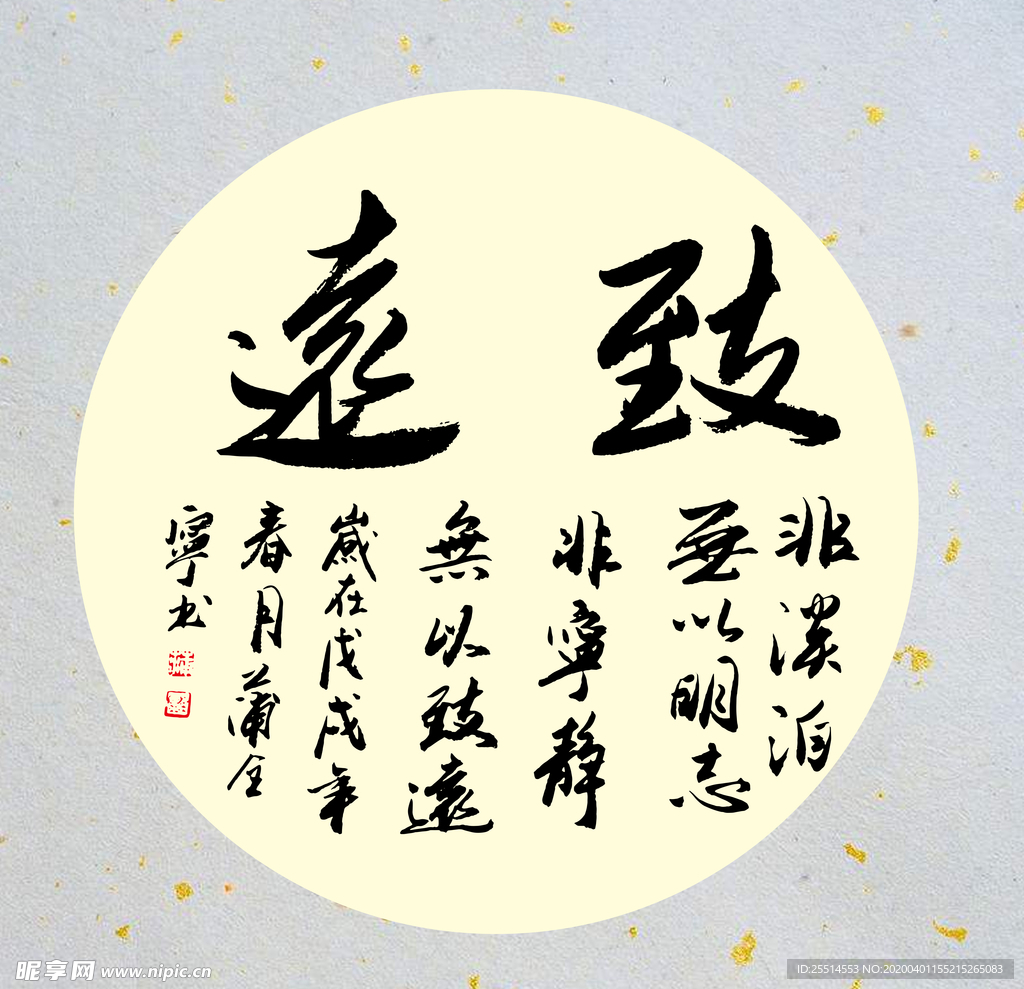 致遠
非淡泊
無以明志
非寧靜
無以致遠
歲在戊戌年
春月蒲全
寧书
昵享网 www.nipic.cn
ID:25514553 NO:20200401155215265083